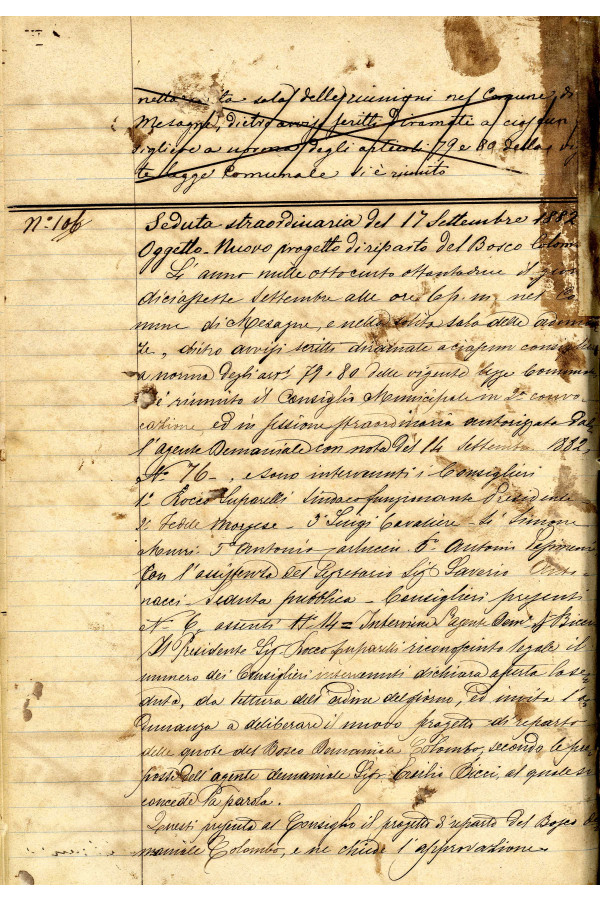 nella so ta sala delle riunioni nel Comune di
Mesagne, dietro avvisi scritti diramati a ciascun
sigliere a norma degli articoli 79 e 80 della vi
te legge Comunale si è riunito
N.º 106
Seduta straordinaria del 17 Settembre 1882
Oggetto - Nuovo progetto di riparto del Bosco Colom
L'anno mille ottocento ottantadue il gior
diciassette Settembre alle ore 6 p. m. nel Co
mune di Mesagne, e nella solita sala delle adunan
ze, dietro avvisi scritti diramati a ciascun consiglie
a norma degli art.i 79 e 80 della vigente legge Comuna
è riunito il Consiglio Municipale in 2a convo
cazione ed in sessione straordinaria autorizzata dal
l'agente Demaniale con nota del 14 Settembre 1882,
N.º 76 -, e sono intervenuti i Consiglieri
1º Rocco Suparelli Sindaco funzionante Presidente
2º Fedele Morgese - 3º Luigi Cavaliere - 4º Simone
Murri - 5º Antonio - 6º Antonio
Con l'assistenza del Segretario Sig. Saverio
nacci - Seduta pubblica - Consiglieri presenti
N.º 6, assenti N.º 14 = Interviene l'agente Dem.
Il Presidente Sig. Rocco Suparelli riconosciuto legale il
numero dei Consiglieri intervenuti dichiara aperta la se
duta, da lettura dell'ordine del giorno, ed invita l'a
dunanza a deliberare il nuovo progetto di reparto
delle quote del Bosco Demaniale Colombo, secondo le pro
poste dell'agente demaniale Sig. Ercilio Bicci, al quale si
concede la parola.
Questi presenta al Consiglio il progetto di reparto del Bosco De
maniale Colombo, e ne chiede l'approvazione.